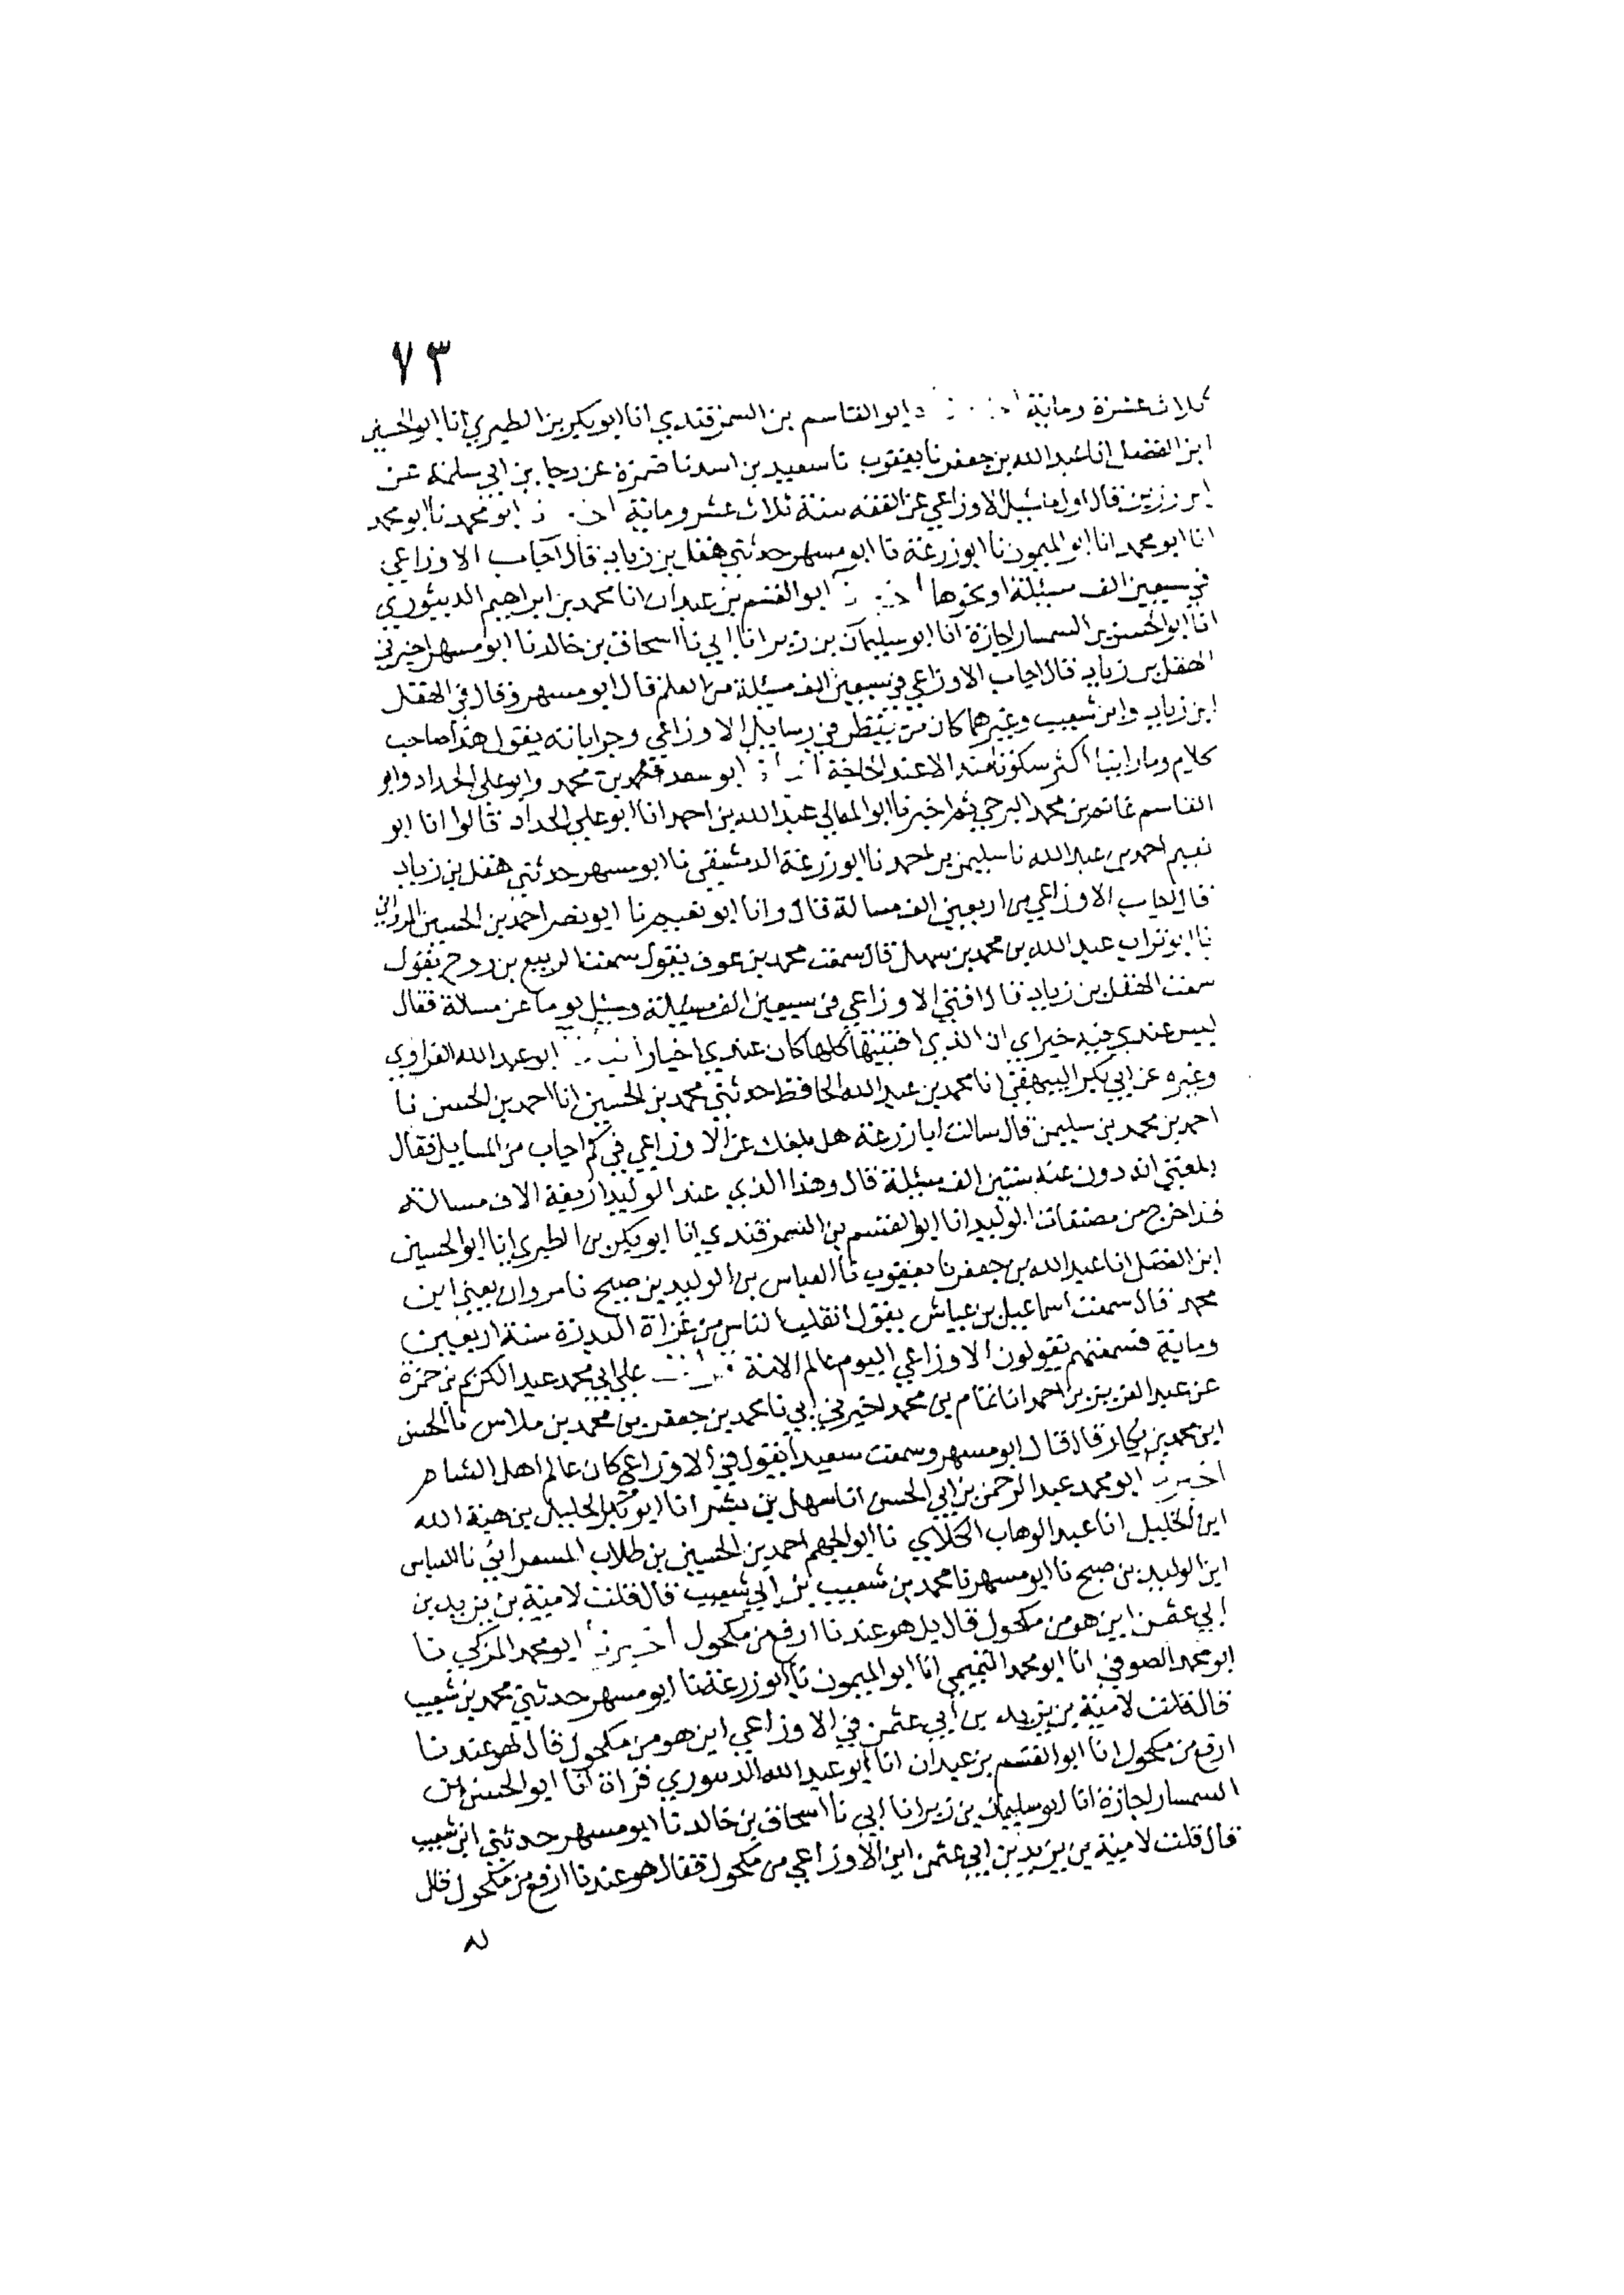 ٧٣
ثلاث عشرة ومائة ابو القاسم بن السمرقندي انا ابو بكر بن الطبري انا ابو الحسين
ابن الفضل انا عبد الله بن جعفر نا يعقوب نا سعيد بن اسد نا ضمرة عن رجا بن ابي سلمة عن
ابن رزين قال اول ما سيل الاوزاعي عن الفقه سنة ثلاث عشر ومائة ابو محمد نا ابو محمد
انا ابو محمد انا ابو الميمون نا ابو زرعة نا ابو مسهر حدثني هقل بن زياد قال اجاب الاوزاعي
في سبعين الف مسئلة او نحوها ابو القسم بن عبدان انا محمد بن ابراهيم الدينوري
انا ابو الحسن بن السمسار اجازة انا ابو سليمان بن زبر انا ابي نا اسحاق بن خالد نا ابو مسهر اخبرني
الهقل بن زياد قال اجاب الاوزاعي في سبعين الف مسئلة من العلم قال ابو مسهر وقال في الهقل
ابن زياد وابن شعيب وغيرهما كان من ينظر في رسايل الاوزاعي وجواباته يقول هذا صاحب
كلام وما راينا اكثر سكوتا منه الا عند الحاجة ابو سعد محمد بن محمد وابو علي الحداد وابو
القاسم غانم بن محمد البرجي ثم اخبرنا ابو المعالي عبد الله بن احمد انا ابو علي الحداد قالوا انا ابو
نعيم احمد بن عبد الله نا سليمن بن احمد نا ابو زرعة الدمشقي نا ابو مسهر حدثني هقل بن زياد
قال اجاب الاوزاعي من اربعين الف مسالة قال وانا ابو نعيم نا ابو نصر احمد بن الحسين المرواني
نا ابو تراب عبد الله بن محمد بن سهل قال سمعت محمد بن عوف يقول سمعت الربيع بن روح يقول
سمعت الهقل بن زياد قال افتى الاوزاعي في سبعين الف مسئلة وسيل يوما عن مسلاة فقال
ليس عندي فيه خبر اي ان الذي افتيتها كلها كان عندي اخبار ابو عبد الله الفراوي
وغيره عن ابي بكر البيهقي انا محمد بن عبد الله الحافظ حدثني محمد بن الحسين انا احمد بن الحسن نا
احمد بن محمد بن سليمن قال سالت ابا زرعة هل بلغك عن الاوزاعي في كم اجاب من المسايل فقال
بلغني انه دون عنه ستين الف مسئلة قال وهذا الذي عند الوليد اربعة الاف مسالة
قد اخرج من مصنفات الوليد انا ابو القسم بن السمرقندي انا ابو بكر بن الطبري انا ابو الحسين
ابن الفضل انا عبد الله بن جعفر نا يعقوب نا العباس بن الوليد بن صبيح نا مروان يعني ابن
محمد قال سمعت اسماعيل بن عياش يقول انقلب الناس من غزاة الندرة سنة اربعين
ومائة فسمعتهم يقولون الاوزاعي اليوم عالم الامة علي ابي محمد عبد الكريم بن حمزة
عن عبد العزيز بن احمد انا تمام بن محمد اخبرني ابي نا محمد بن جعفر بن محمد بن ملاس نا الحسن
ابن محمد بن بكار قال قال ابو مسهر وسمعت سعيدا يقول في الاوزاعي كان عالم اهل الشام
اخبرنا ابو محمد عبد الرحمن بن ابي الحسن انا سهل بن بشر انا ابو بكر الخليل بن هبة الله
ابن الخليل انا عبد الوهاب الكلابي نا ابو الجهم احمد بن الحسين بن طلاب المسعراني نا العباس
ابن الوليد بن صبح نا ابو مسهر نا محمد بن شعيب بن ابي شعيب قال قلت لامية بن يزيد بن
ابي عثمن اين هو من مكحول قال بل هو عندنا ارفع من مكحول اخبرنا ابو محمد المزكي نا
ابو محمد الصوفي انا ابو محمد التميمي انا ابو الميمون نا ابو زرعة نا ابو مسهر حدثني محمد بن شعيب
قال قلت لامية بن يزيد بن ابي عثمن في الاوزاعي اين هو من مكحول قال لهو عندنا
ارفع من مكحول انا ابو القسم بن عبدان انا ابو عبد الله الدسوري قراة انا ابو الحسن بن
السمسار اجازة انا ابو سليمان بن زبر انا ابي نا اسحاق بن خالد نا ابو مسهر حدثني ابن شعيب
قال قلت لامية بن يزيد بن ابي عثمن اين الاوزاعي من مكحول فقال هو عندنا ارفع من مكحول قلت
له